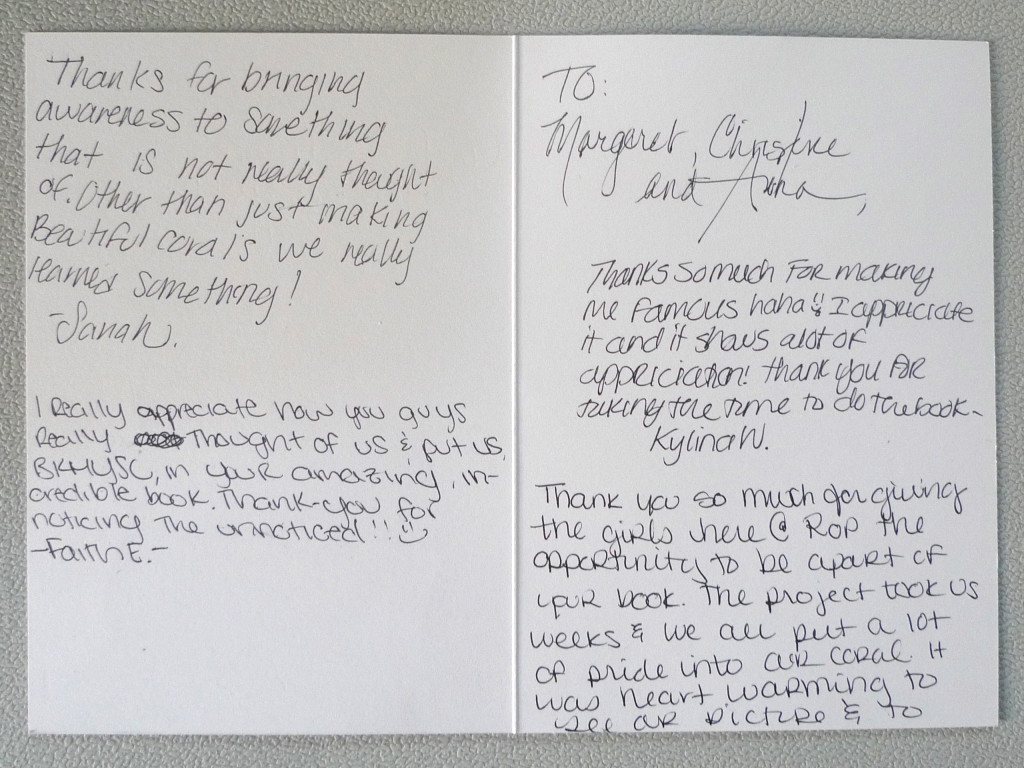 Thanks for bringing
awareness to something
that is not really thought
of. Other than just making
Beautiful corals we really
learned something!
-Sanah.
I Really appreciate how you guys
Really thought of us & put us,
BKHYSC, in your amazing, in-
credible book. Thank-you for
noticing the unnoticed!! ☺
-Faith E.-
TO:
Margaret, Christine
and Anna,
Thanks so much For making
me famous haha!! I appriciate
it and it shows a lot of
appriciation! thank you For
taking the time to do the book-
Kylina W.
Thank you so much for giving
the girls here @ ROP the
opportunity to be apart of
your book. The project took us
weeks & we all put a lot
of pride into our coral. It
was heart warming to
see our picture & to